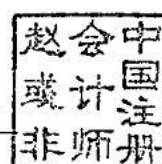 中国注册
会计师
赵或非